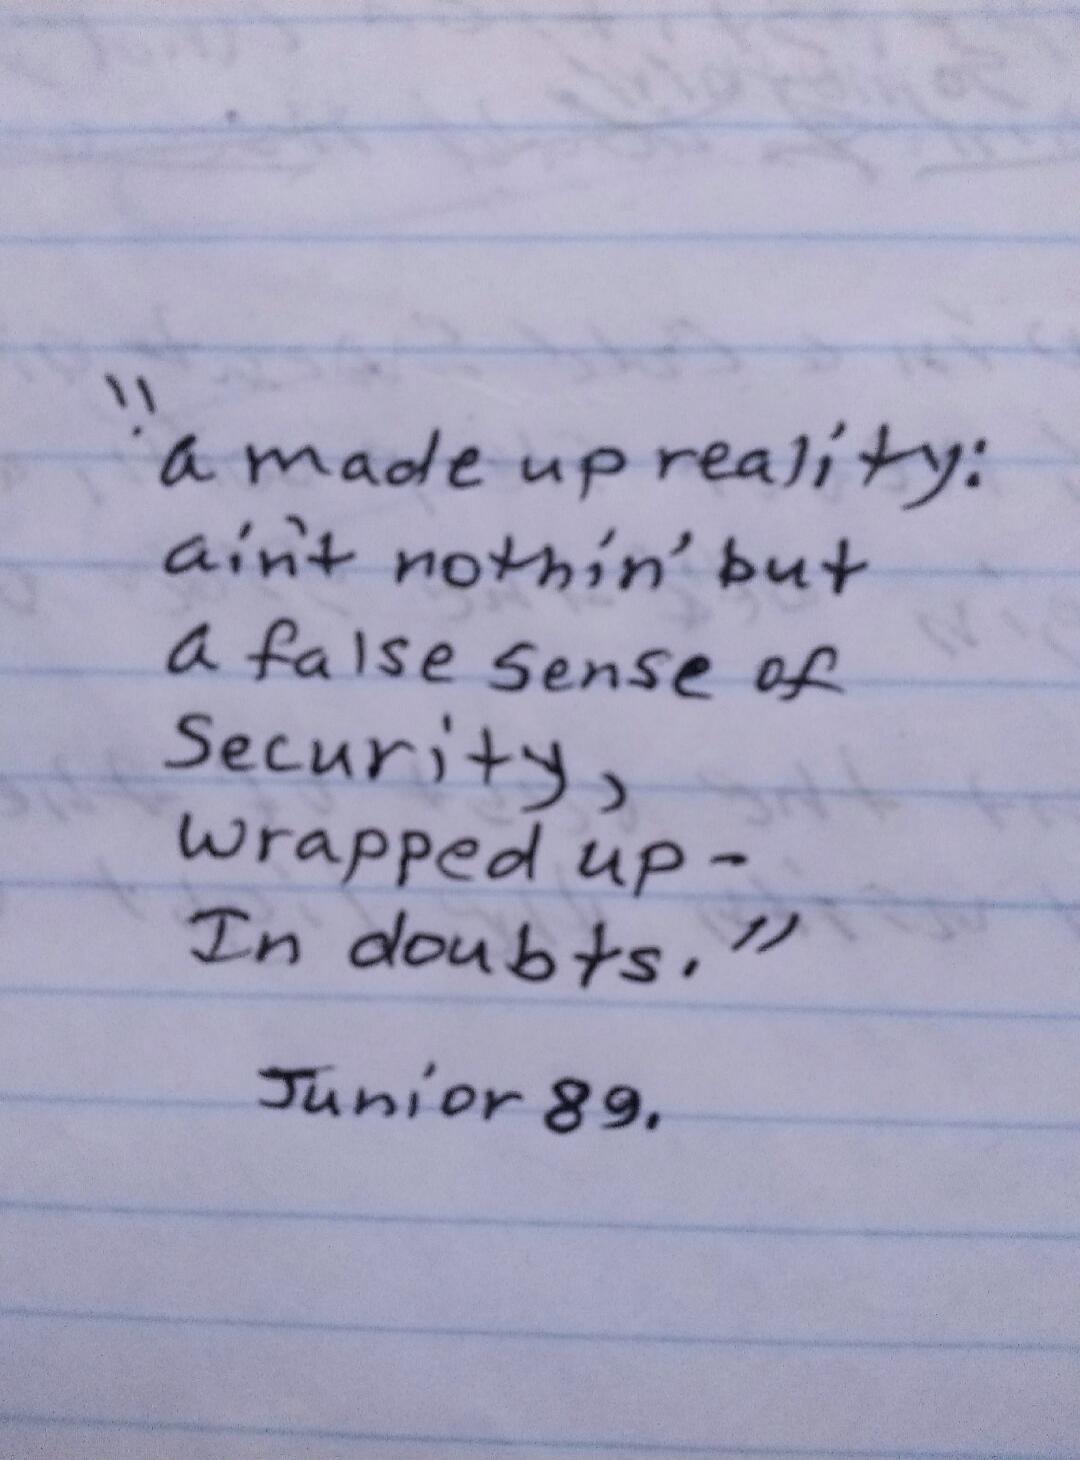 "a made up reality:
ain't nothin' but
a false sense of
Security,
wrapped up -
In doubts."
Junior 89.